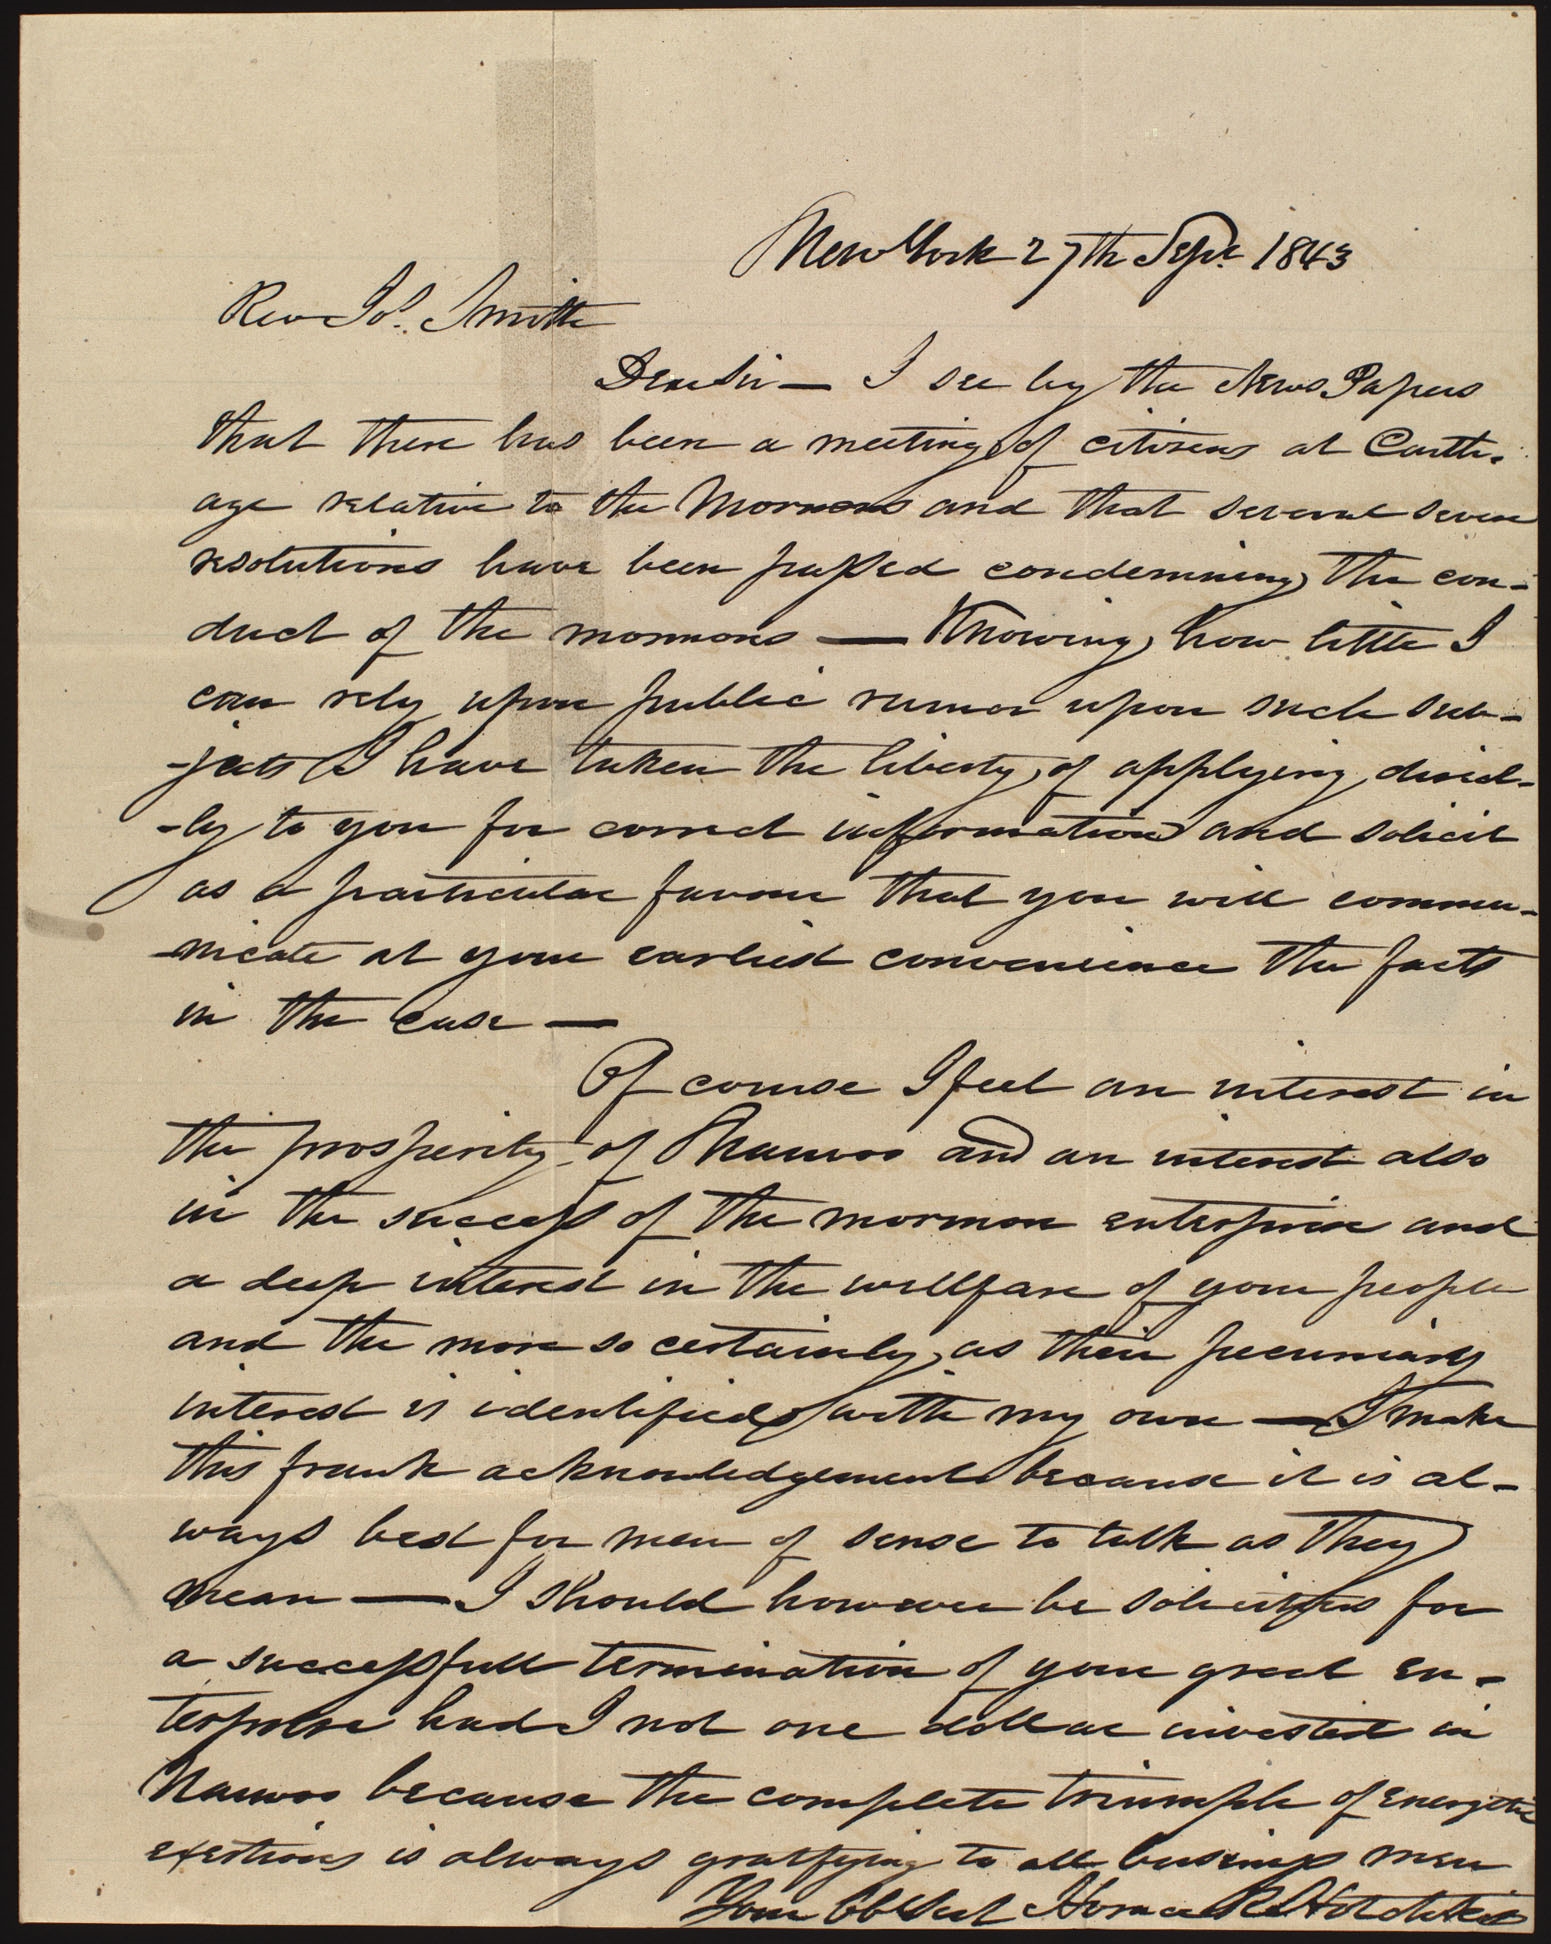 New York 27th Sept. 1843
Rev Jos. Smith
Dear Sir — I see by the News Papers
that there has been a meeting of citizens at Carth-
age relative to the Mormons and that several severe
resolutions have been passed condemning the con-
duct of the mormons — Knowing how little I
can rely upon public rumor upon such sub-
-jects I have taken the liberty of applying direct-
-ly to you for correct information and solicit
as a particular favour that you will commu-
-nicate at your earliest convenience the facts
in the case —
Of course I feel an interest in
the prosperity of Nauvoo and an interest also
in the success of the mormon enterprise and
a deep interest in the wellfare of your people
and the more so certainly as their pecuniary
interest is identified with my own — I make
this frank acknowledgement because it is al-
ways best for men of sense to talk as they
mean — I should however be solicitous for
a successfull termination of your great en-
terprise had I not one dollar invested in
Nauvoo because the complete triumph of energetic
exertions is always gratifying to all business men
Your Obt Servt Horace R. Hotchkiss